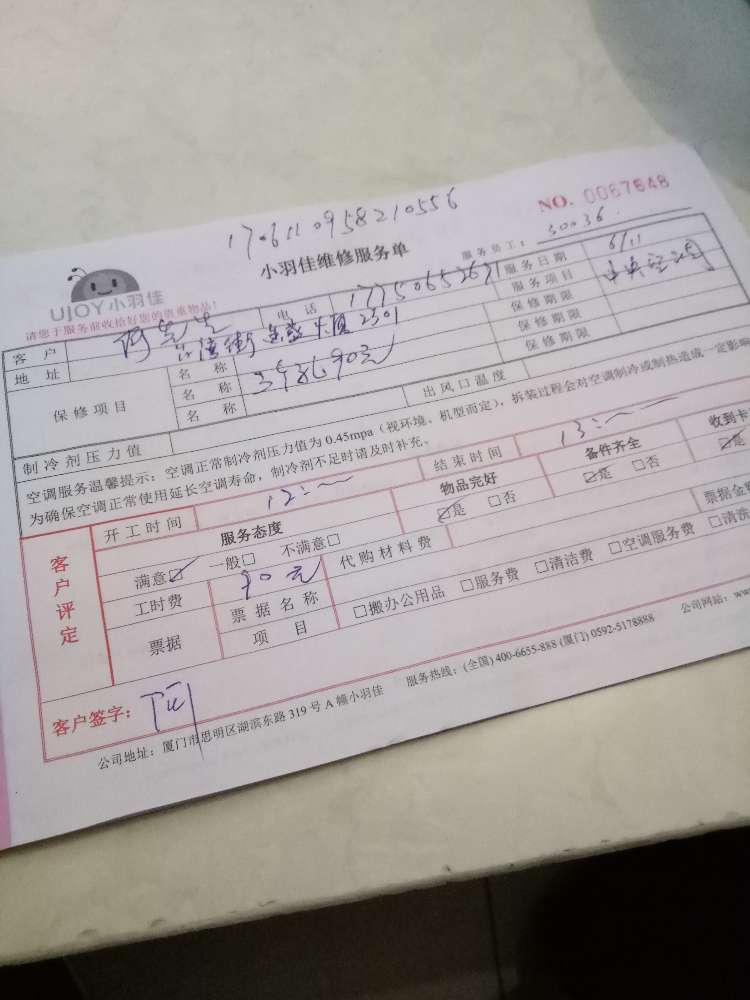 170611095821 0556
NO. 0067848
小羽佳维修服务单
服务员工： 30036
UJOY小羽佳
请您于服务前收拾好您的贵重物品！
客 户 电 话 17750652671 服务日期 6/11
地 址 2301 服务项目 中央空调
保修项目 名 称 90元 保修期限
名 称 保修期限
名 称 保修期限
制冷剂压力值 出风口温度
空调服务温馨提示：空调正常制冷剂压力值为 0.45mpa（视环境、机型而定），拆装过程会对空调制冷或制热造成一定影响
为确保空调正常使用延长空调寿命，制冷剂不足时请及时补充。
客户评定
开工时间 12: 结束时间 13:
服务态度 物品完好 备件齐全 收到卡
满意☑ 一般□ 不满意□ ☑是 □否 ☑是 □否 ☑是
工时费 90元 代购材料费 票据金额
票据 票据名称
项 目 □搬办公用品 □服务费 □清洁费 □空调服务费 □清洗
客户签字：
公司地址：厦门市思明区湖滨东路 319 号 A 幢小羽佳 服务热线：(全国) 400-6655-888 (厦门) 0592-5178888 公司网站：www